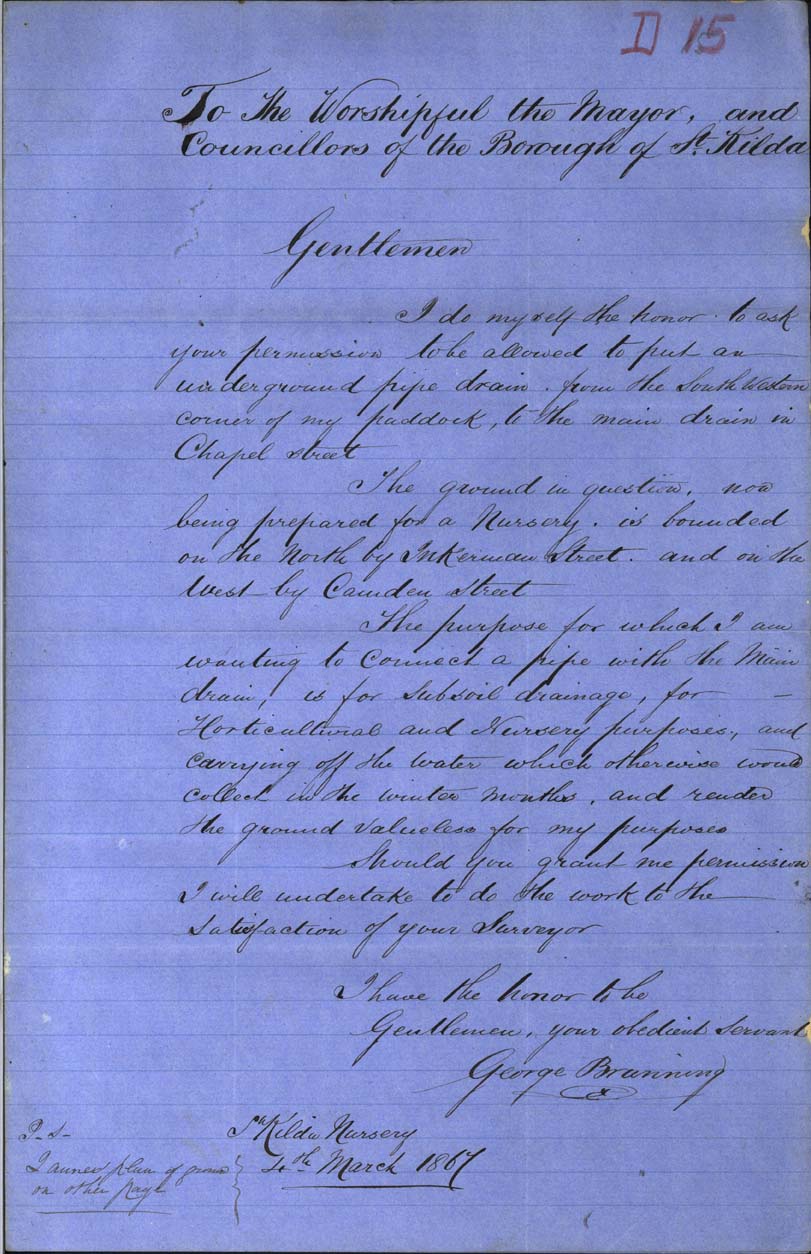 D 15
To The Worshipful the Mayor, and
Councillors of the Borough of St. Kilda
Gentlemen
I do myself the honor to ask
your permission to be allowed to put an
underground pipe drain from the South Western
corner of my paddock, to the main drain in
Chapel street
The ground in question, now
being prepared for a Nursery. is bounded
on the North by Inkerman Street. and on the
West by Camden street
The purpose for which I am
wanting to connect a pipe with the Main
drain, is for Subsoil drainage, for —
Horticultural and Nursery purposes, and
carrying off the water which otherwise would
collect in the winter months, and render
the ground valueless for my purposes
Should you grant me permission
I will undertake to do the work to the
satisfaction of your Surveyor
I have the honor to be
Gentlemen, your obedient Servant
George Brunning
St Kilda Nursery
4th March 1867
P.S.
I annex plan of ground
on other page